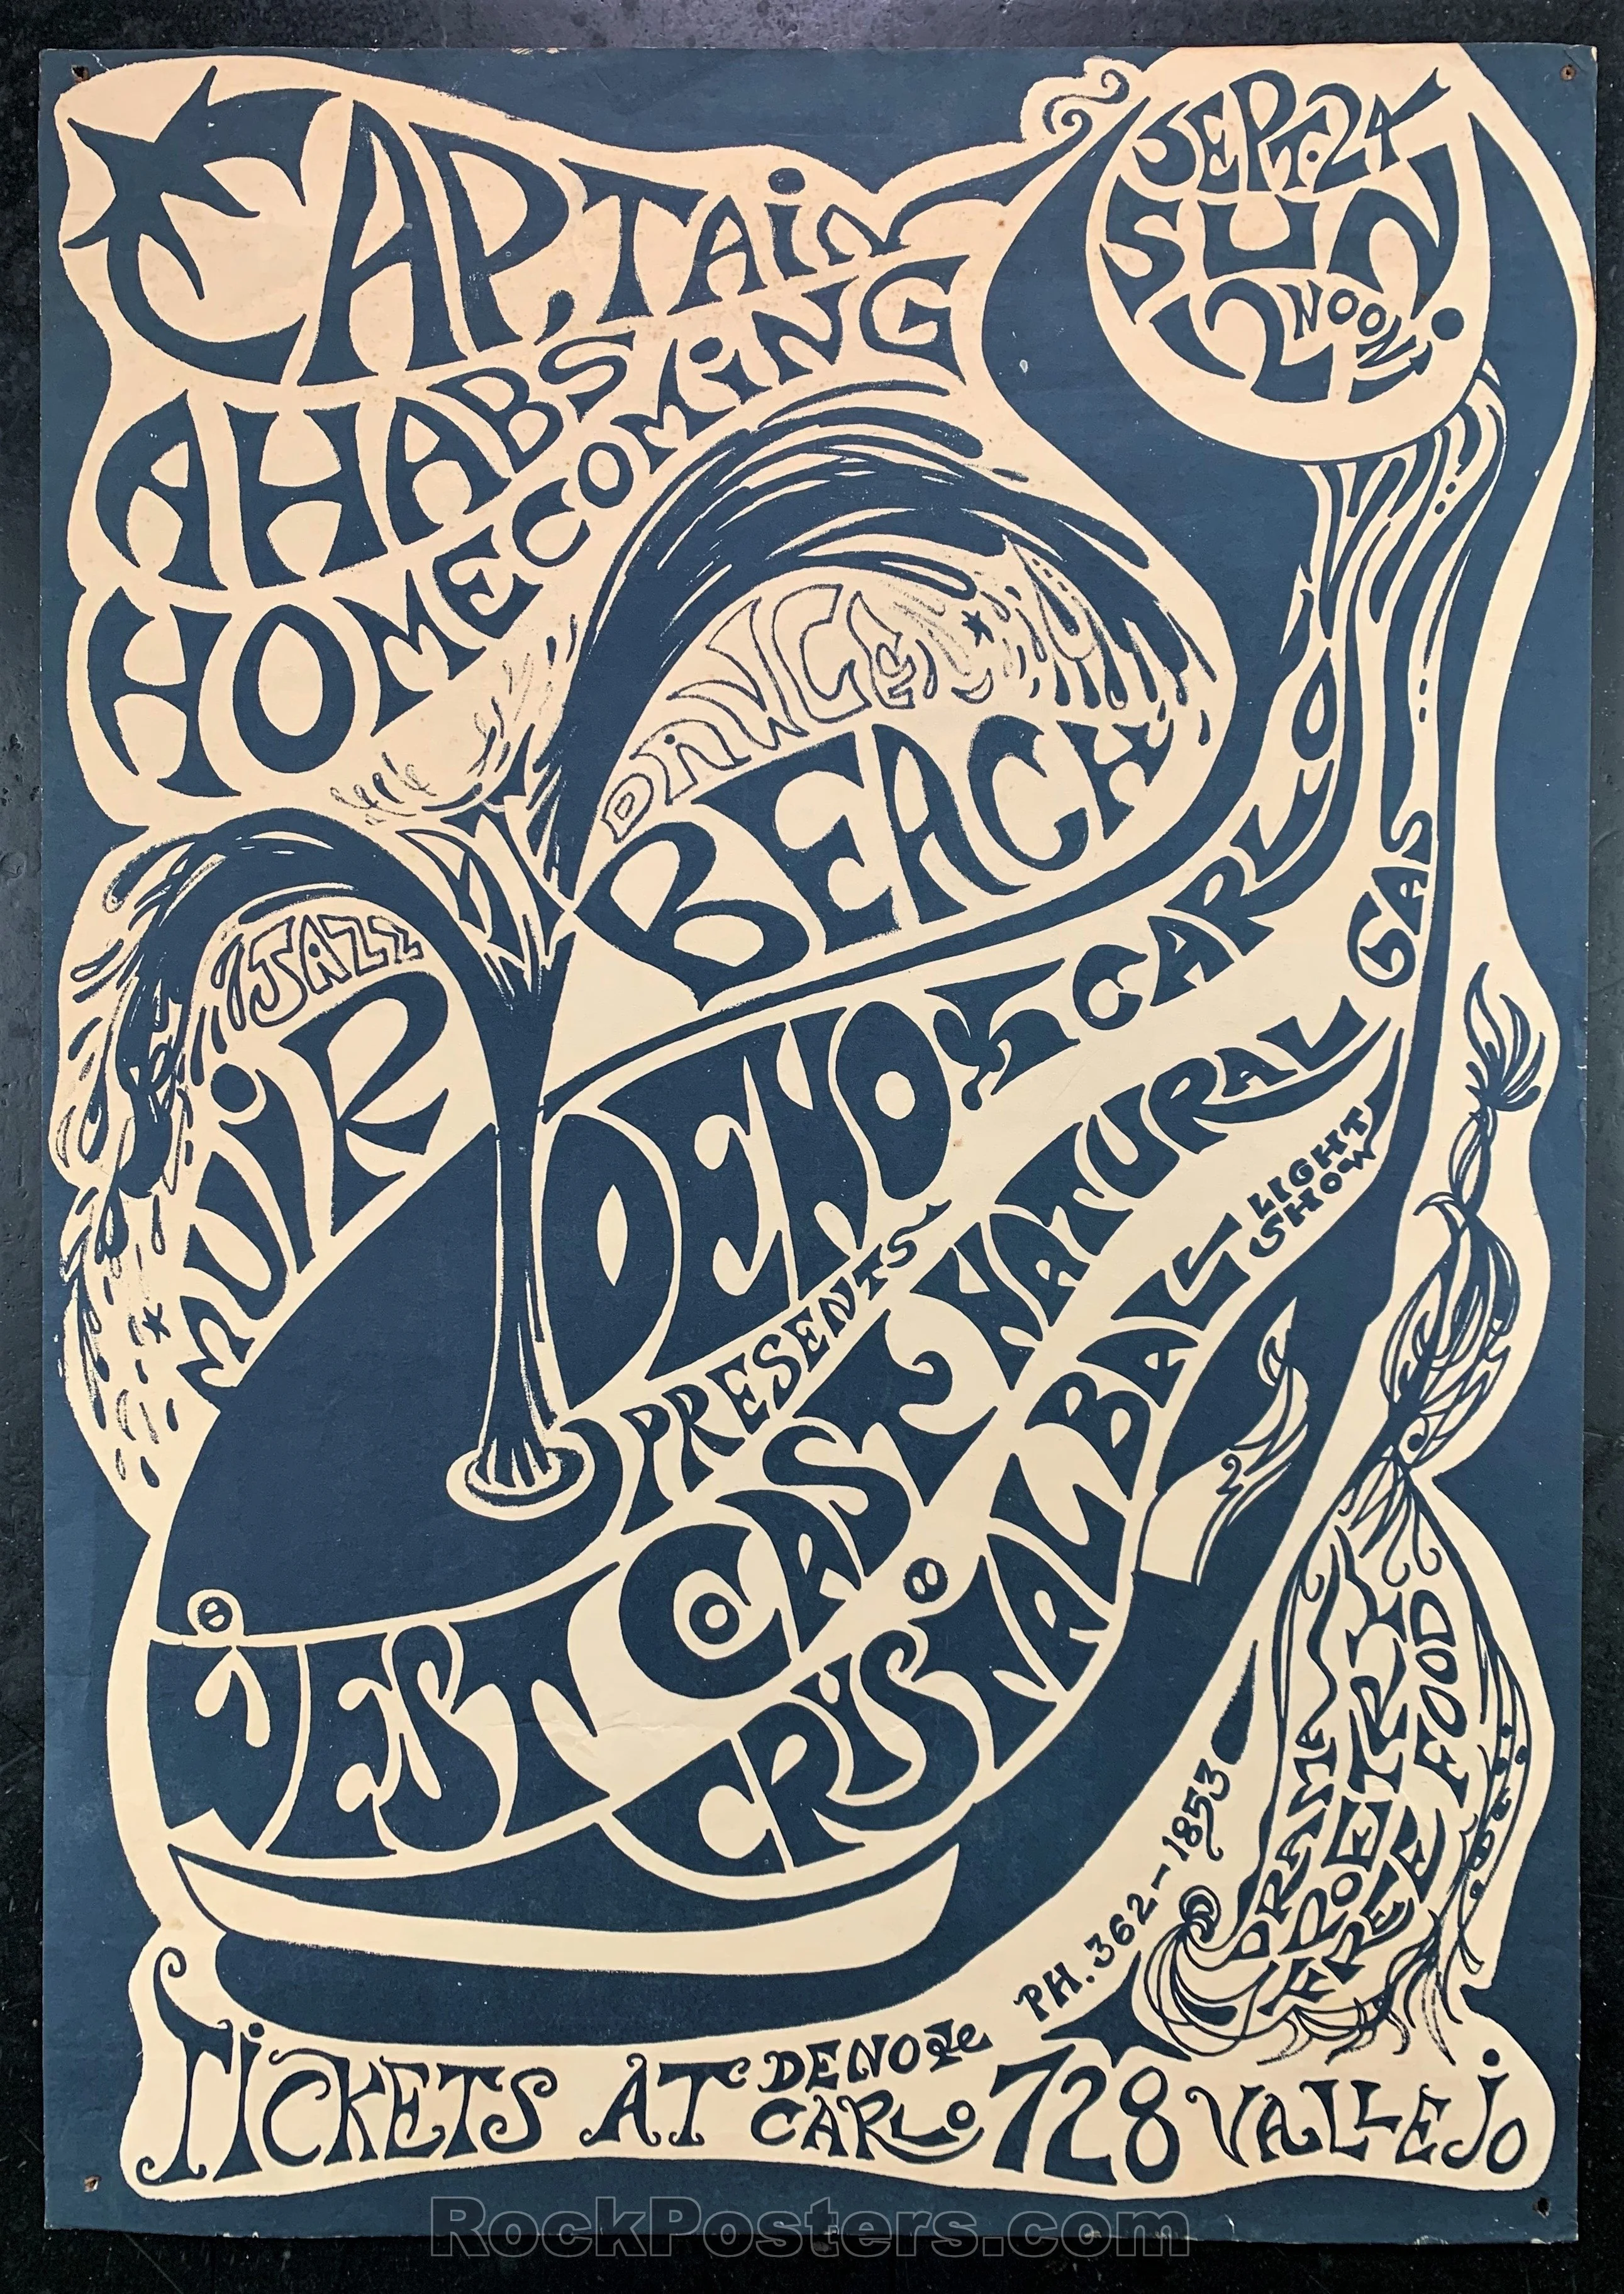 CAPTAiN
AHABS
HOMECOMiNG
SEPT. 24
SUN
12 NOON!
DANCE
BEACH
JAZZ
MUiR
DENO & CARLO
PRESENTS
WEST COAST NATURAL GAS
CRYSTAL BALL
LIGHT
SHOW
DRAMA
POETRY
FREE FOOD
PH. 362-1853
TiCKETS AT DENO &
CARLO 728 VALLEjO
RockPosters.com